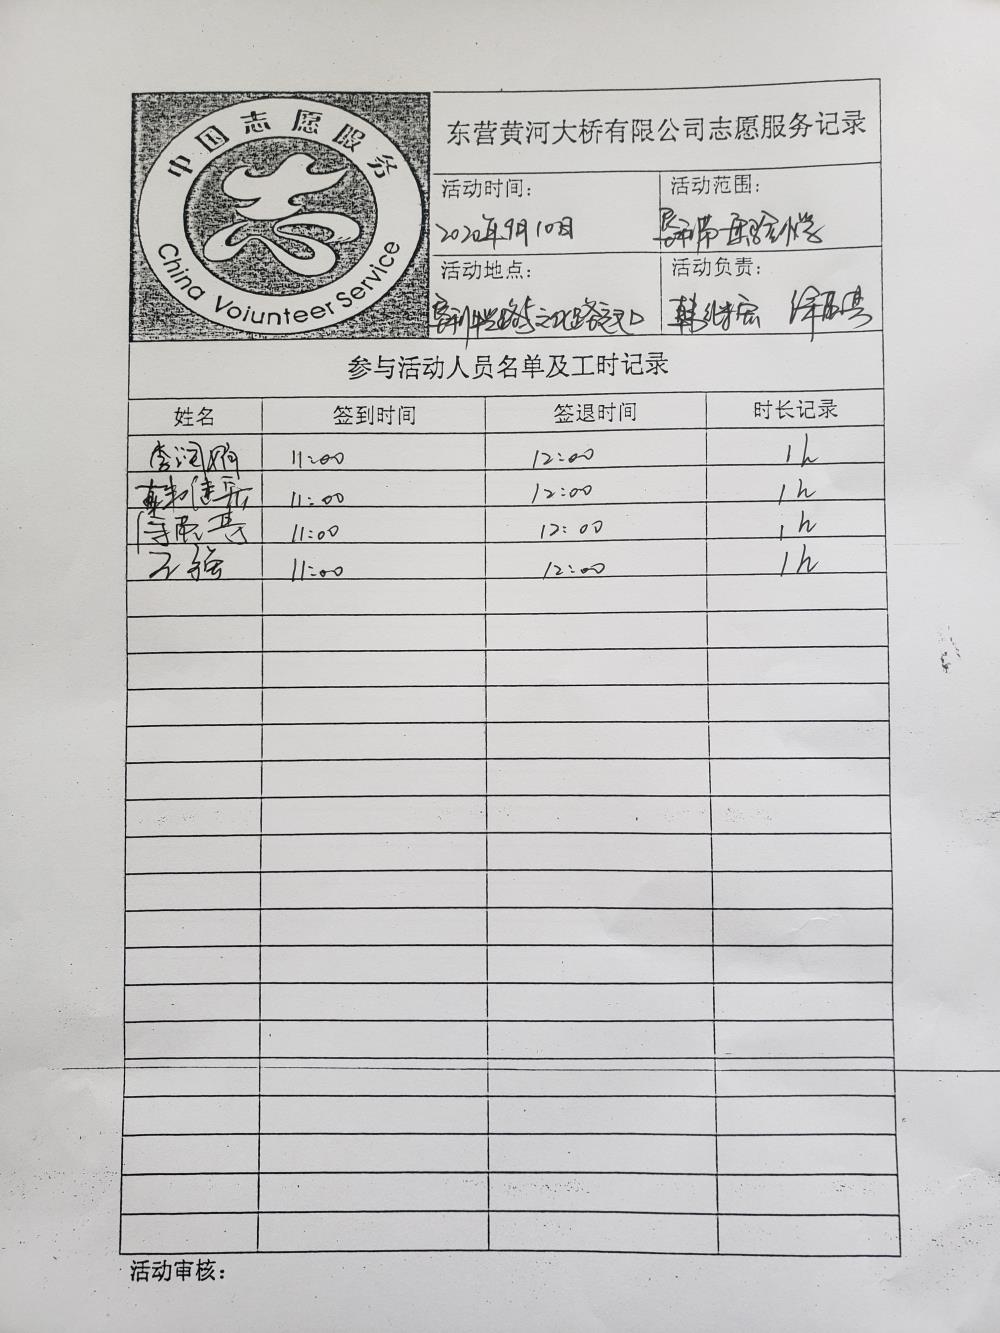 中国志愿服务
China Voiunteer Service
东营黄河大桥有限公司志愿服务记录
活动时间:
活动范围:
2020年9月10日
活动地点:
活动负责:
参与活动人员名单及工时记录
姓名 签到时间 签退时间 时长记录
11:00 12:00 1h
11:00 12:00 1h
11:00 12:00 1h
王强 11:00 12:00 1h
活动审核: